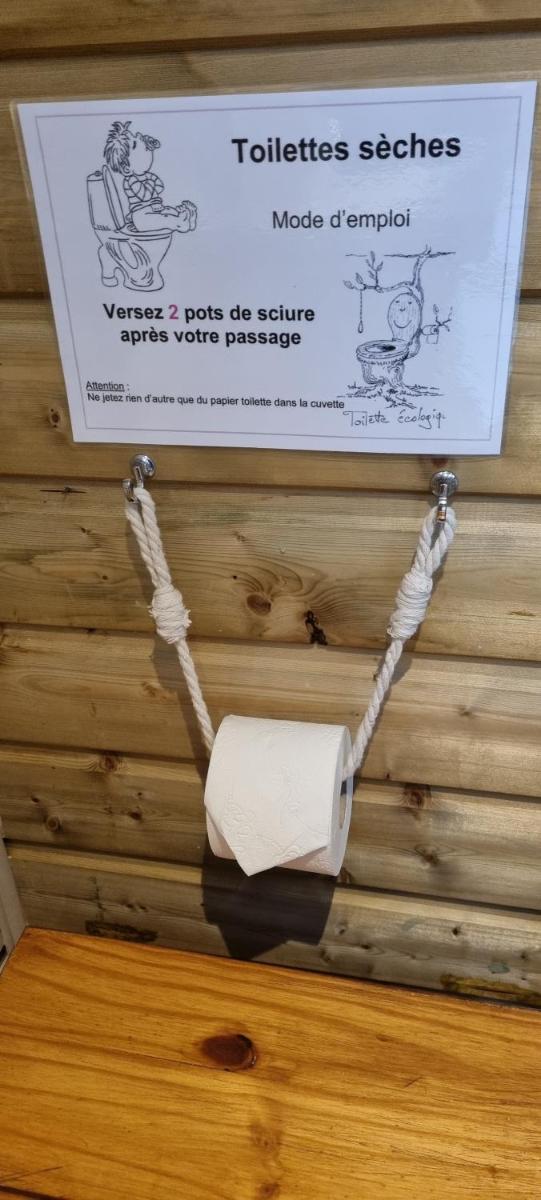 Toilettes sèches
Mode d'emploi
Versez 2 pots de sciure
après votre passage
Attention :
Ne jetez rien d'autre que du papier toilette dans la cuvette
Toilette écologiq